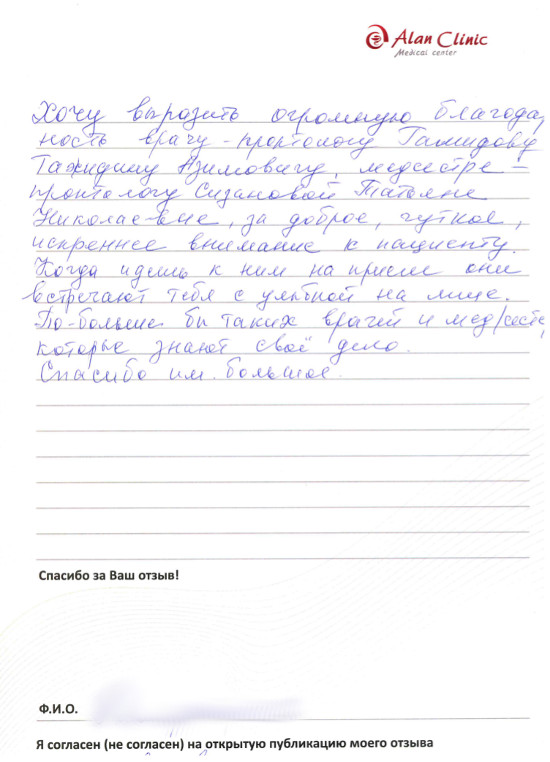 Alan Clinic
Medical center
Хочу выразить огромную благодар
ность врачу-проктологу Гамидову
Тажидину Азимовичу, медсестре –
проктологу Сизановой Татьяне
Николаевне, за доброе, чуткое,
искреннее внимание к пациенту.
Когда идешь к ним на прием они
встречают тебя с улыбкой на лице.
По-больше бы таких врачей и мед/сесте,
которые знают своё дело.
Спасибо им большое.
Спасибо за Ваш отзыв!
Ф.И.О.
Я согласен (не согласен) на открытую публикацию моего отзыва